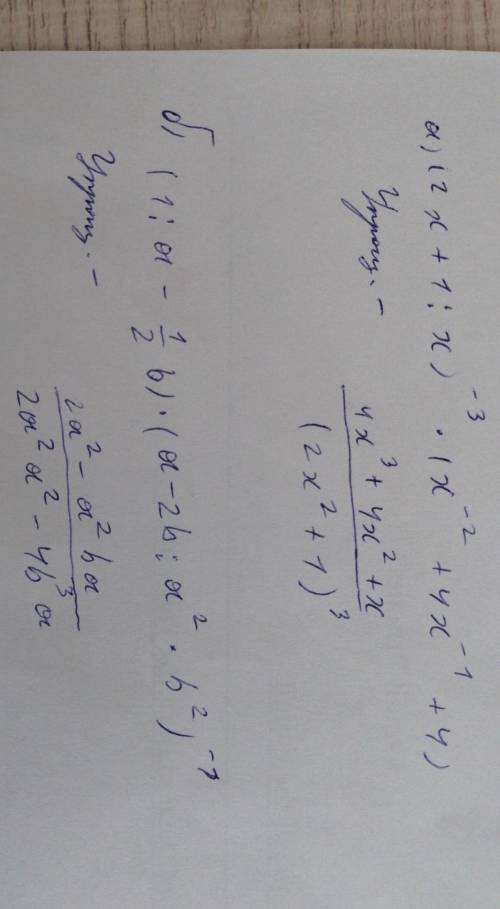 а) (2x + 1 : x)⁻³ · (x⁻² + 4x⁻¹ + 4)
4x³ + 4x² + x
(2x² + 1)³
б) (1 : a - 1/2 b) · (a - 2b : a² · b²)⁻¹
2a² - a²ba
2a²a² - 4b³a